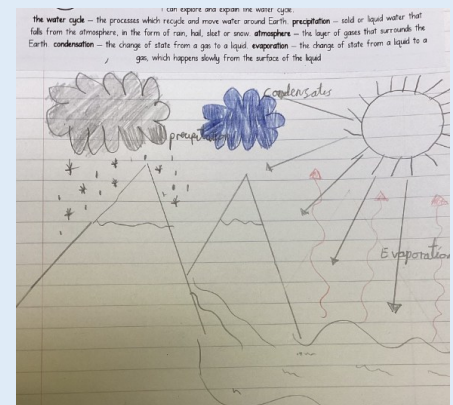 I can explore and explain the water cycle.
the water cycle – the processes which recycle and move water around Earth. precipitation – solid or liquid water that
falls from the atmosphere, in the form of rain, hail, sleet or snow. atmosphere – the layer of gases that surrounds the
Earth. condensation – the change of state from a gas to a liquid. evaporation – the change of state from a liquid to a
gas, which happens slowly from the surface of the liquid
Condensates
precipitation
Evaporation